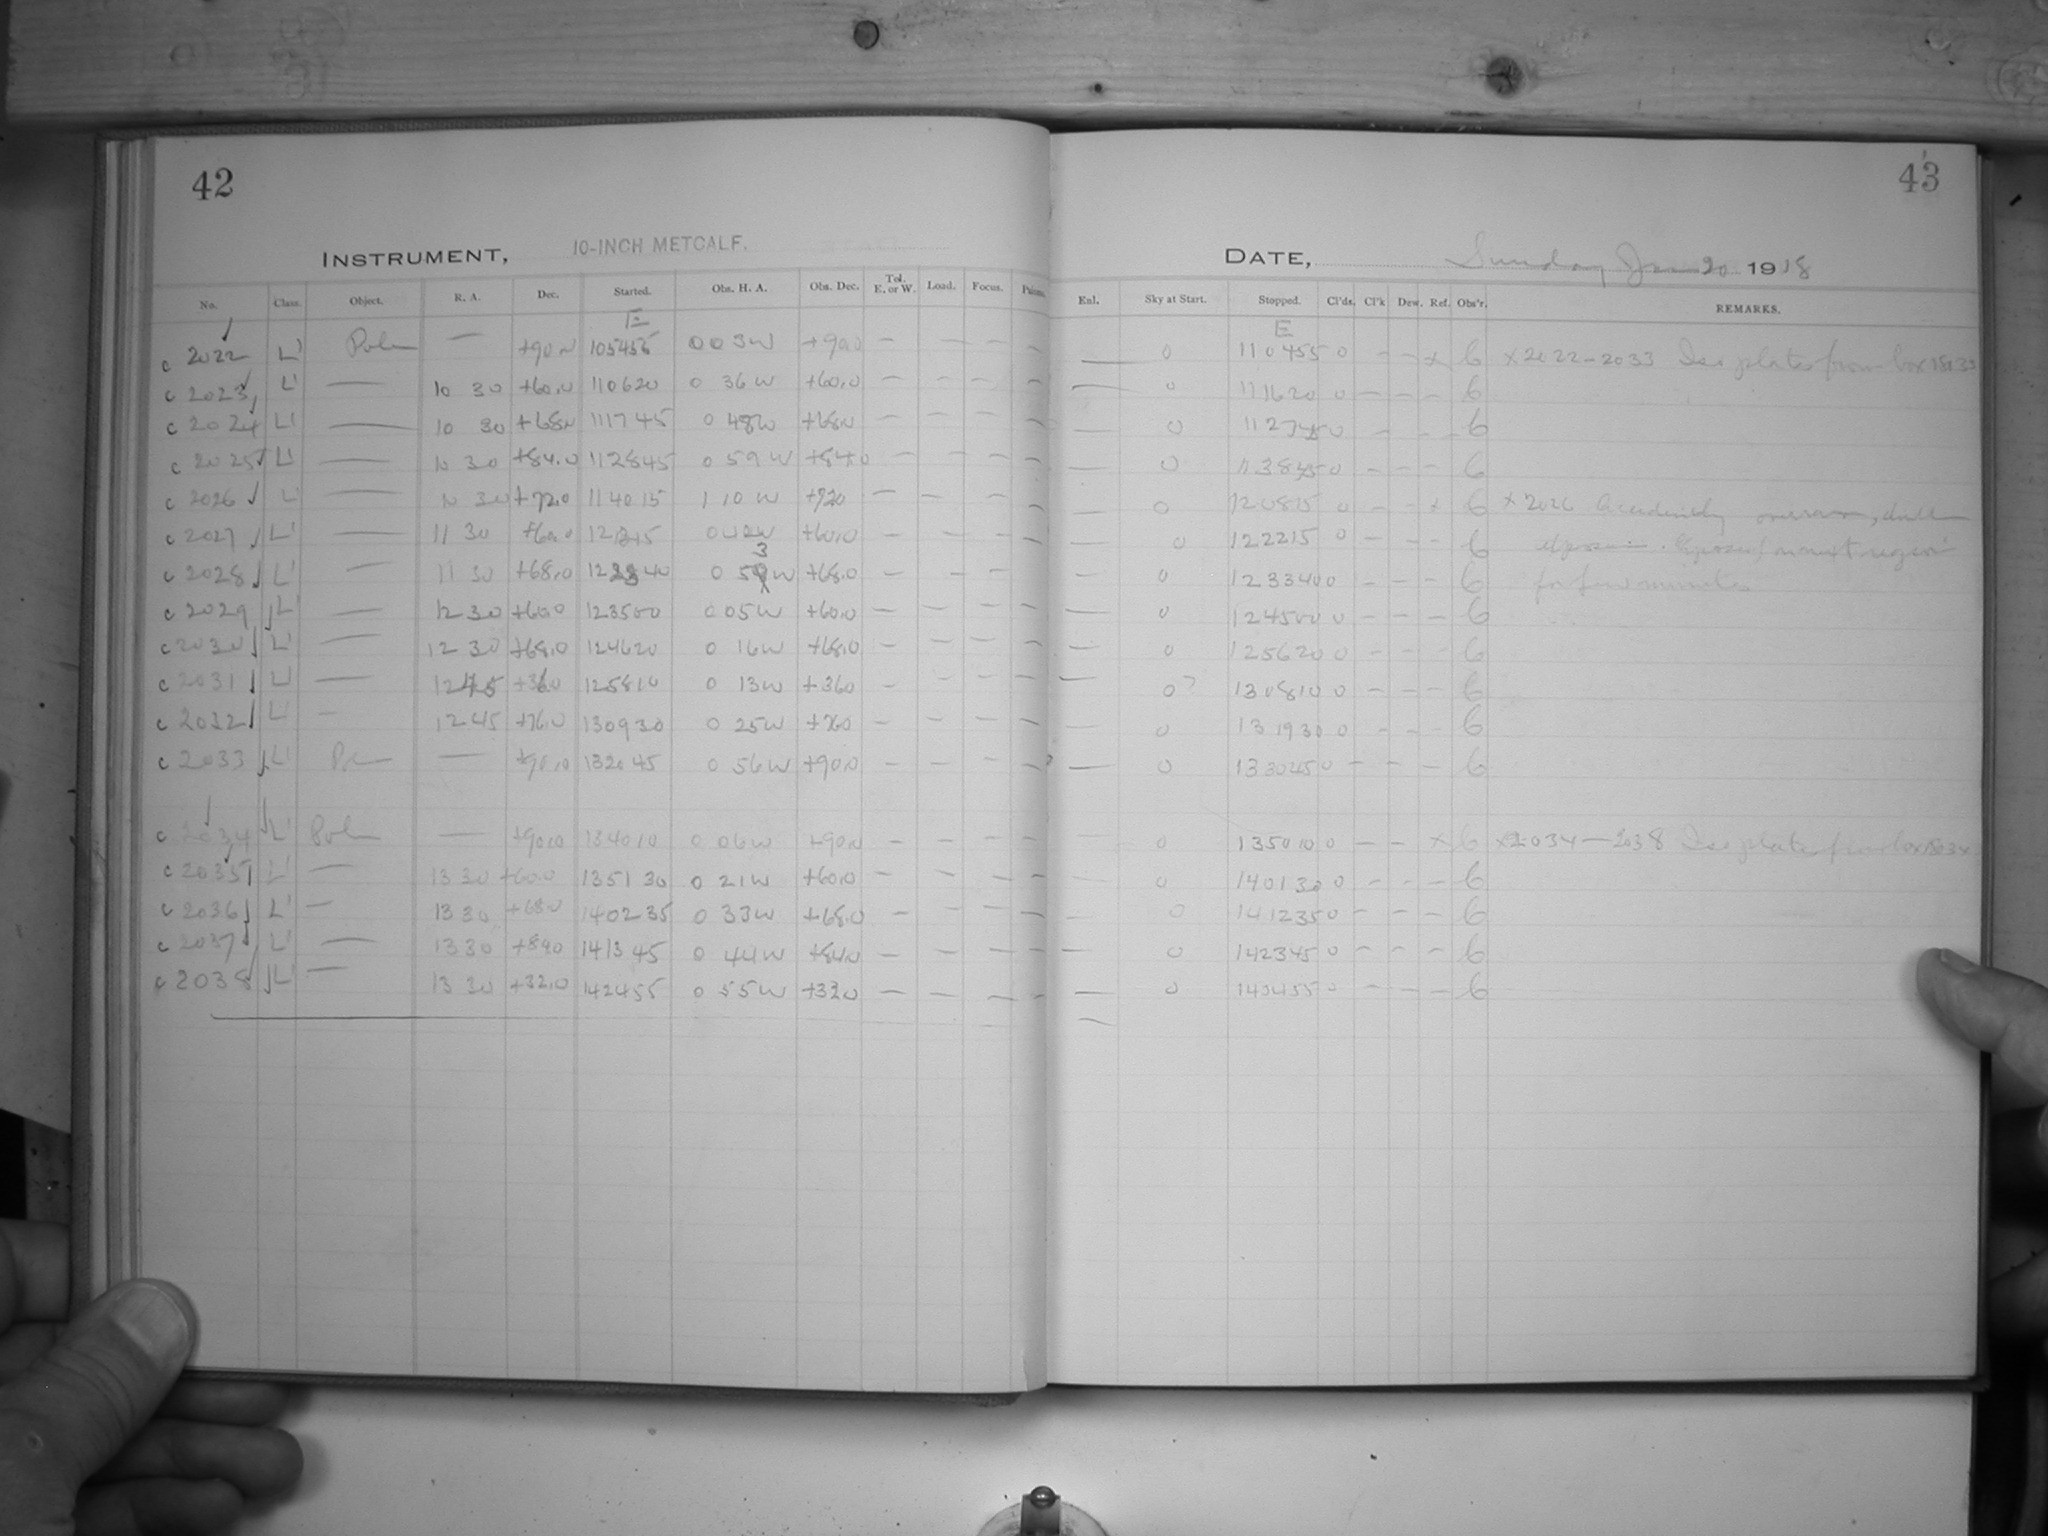 42
INSTRUMENT, 10-INCH METCALF.
No. Class. Object. R. A. Dec. Started. Obs. H. A. Obs. Dec. Tel. E. or W. Load. Focus.
E
c 2022 L' Pole — +90.0 105455 0 03W +90.0 — — — —
c 2023 L' — 10 30 +60.0 110620 0 36W +60.0 — — — —
c 2024 L' — 10 30 +68.0 111745 0 48W +68.0 — — — —
c 2025 L' — 10 30 +84.0 112845 0 59W +84.0 — — — —
c 2026 L' — 10 30 +72.0 114015 1 10W +720 — — — —
c 2027 L' — 11 30 +60.0 +60.0 — — — —
c 2028 L' — 11 30 +68.0 0 53W +68.0 — — — —
c 2029 L' — 12 30 +60.0 123500 0 05W +60.0 — — — —
c 2030 L' — 12 30 +68.0 124620 0 16W +68.0 — — — —
c 2031 L' — 12 45 +36.0 125810 0 13W +360 — — — —
c 2032 L' — 12 45 +76.0 130930 0 25W +760 — — — —
c 2033 L' — 132045 0 56W +90.0 — — — —
c 2034 L' Pole — +90.0 134010 0 06W +90.0 — — — —
c 2035 L' — 13 30 +60.0 135130 0 21W +60.0 — — — —
c 2036 L' — 13 30 +68.0 140235 0 33W +68.0 — — — —
c 2037 L' — 13 30 141345 0 44W +84.0 — — — —
c 2038 L' — 13 30 +32.0 142455 0 55W +320 — — — —
43
DATE, Sunday Jan 20 1918
Enl. Sky at Start. Stopped. Cl'ds. Cl'k Dew. Ref. Obs'r. REMARKS.
E
— 0 110455 0 — — x 6 x2022-2033 Iso plates from box
— 0 111620 0 — — — 6
— 0 112745 0 — — — 6
— 0 113845 0 — — — 6
— 0 120815 0 — — x 6 x 2026 Accidentally
— 0 122215 0 — — — 6 next region
— 0 123340 0 — — — 6 for few minutes
— 0 124500 0 — — — 6
— 0 125620 0 — — — 6
— 0? 130810 0 — — — 6
— 0 131930 0 — — — 6
— 0 133045 0 — — — 6
— 0 135010 0 — — x 6 x2034-2038 Iso plates from box
— 0 140130 0 — — — 6
— 0 141235 0 — — — 6
— 0 142345 0 — — — 6
— 0 0 — — — 6